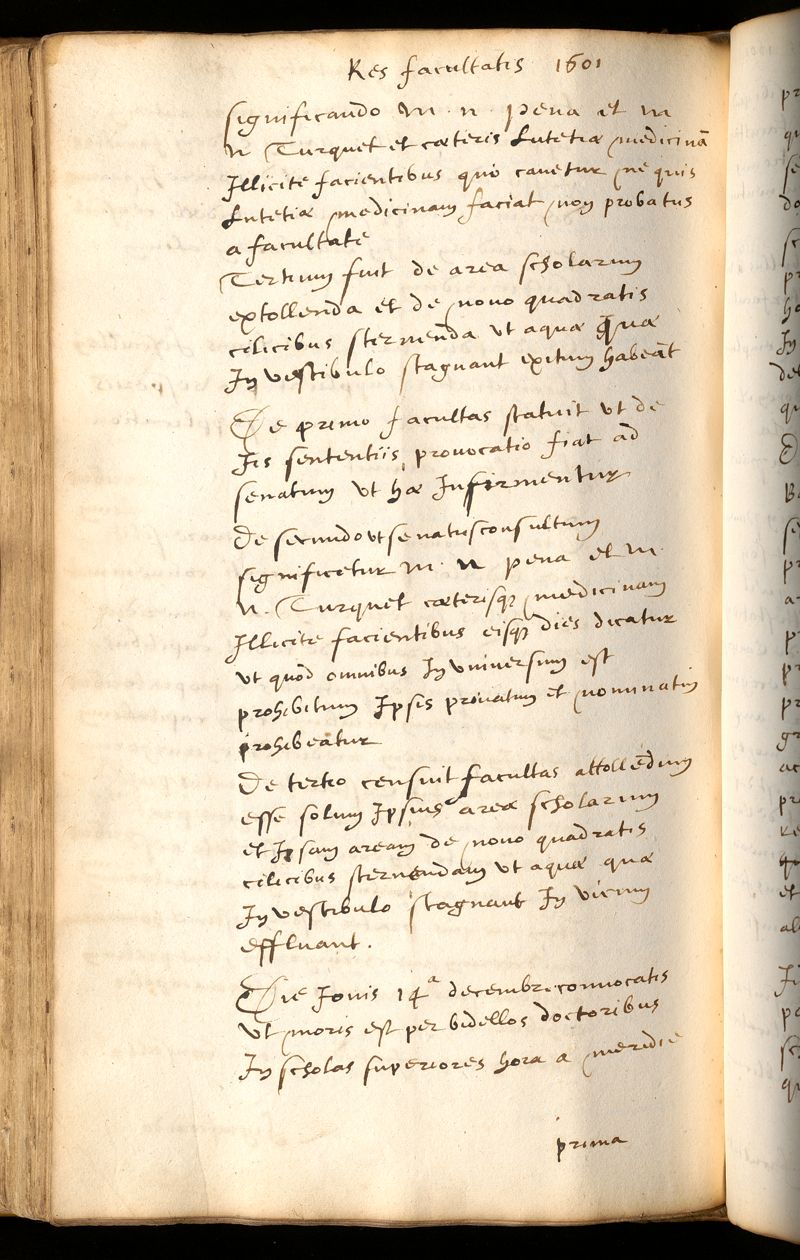 Res facultatis 1601
significando m. n. pena et m
n Turquet et cæteris Lutetiæ medicinā
Illicite facientibus quo cauetur ne quis
Lutetiæ medicinam faciat non probatus
a facultate
Tertium fuit de area scholarum
extollenda et de nouo quadratis
cilicibus sternenda vt aquæ quæ
In vestibulo stagnant exitum habeāt
De primo facultas statuit vt de
Iis sententiis prouocatio fiat ad
senatum vt hæ Infirmentur
De secundo vt senatusconsultum
significetur m. n pena et m.
n. Turquet cæterisq; medicinam
Illicite facientibus eisq; dies dicatur
vt quod omnibus In vniuersum est
prohibitum Ipsis priuatum et nominatim
prohibeatur
De tertio censuit facultas attollēdum
esse solum Ipsius areæ scholarum
et Ipsam aream de nouo quadratis
cilicibus sternendam vt aquæ quæ
In vestibulo stagnant In vicum
effluant.
Die Iouis 14ª decembri conuocatis
vt moris est per bidellos doctoribus
In scholas superiores hora a meridie
prima